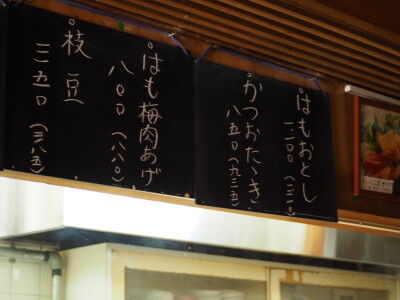 はもおとし
一、一〇〇（一二一〇）
かつおたゝき
八五〇（九三五）
はも梅肉あげ
八〇〇（八八〇）
枝豆
三五〇（三八五）